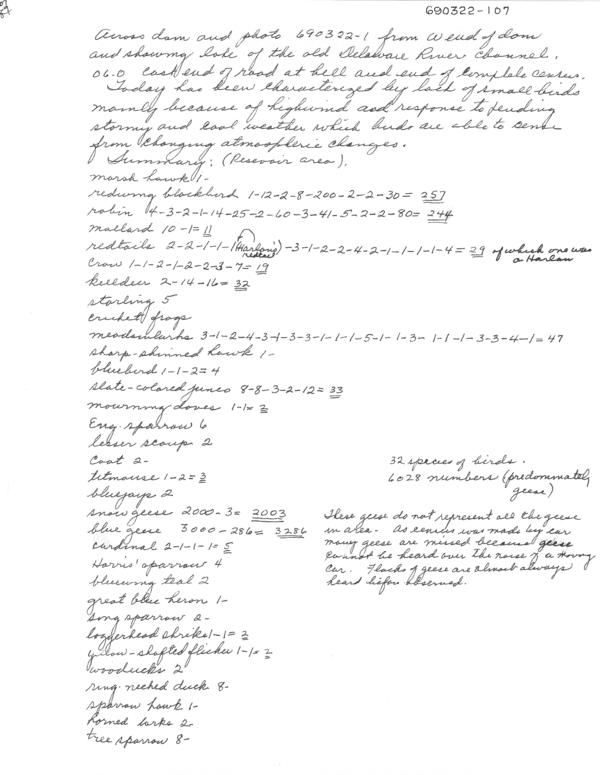 690322-107
Across dam and photo 690322-1 from W end of dam
and showing lake of the old Delaware River Channel.
06.0 East end of road at hell and end of complete census.
Today has been characterized by lack of small birds
mainly because of high wind and response to pending
stormy and cool weather which birds are able to sense
from changing atmospheric changes.
Summary: (Resevoir area).
marsh hawk 1-
redwing blackbird 1-12-2-8-200-2-2-30= 257
robin 4-3-2-1-14-25-2-60-3-41-5-2-2-80= 244
mallard 10-1= 11
redtails 2-2-1-1-1(Harlan's redtail)-3-1-2-2-4-2-1-1-1-1-4= 29 of which one was a Harlan
Crow 1-1-2-1-2-2-3-7= 19
killdeer 2-14-16= 32
starling 5
cricket frogs
meadowlarks 3-1-2-4-3-1-3-3-1-1-1-5-1-1-3-1-1-1-3-3-4-1= 47
sharp-shinned hawk 1-
bluebird 1-1-2= 4
slate-colored junco 8-8-3-2-12= 33
mourning doves 1-1= 2
Eng. sparrow 6
lesser scaup 2
Coot 2-
titmouse 1-2= 3
bluejays 2
snow geese 2000-3= 2003
blue geese 3000-286= 3286
cardinal 2-1-1-1= 5
Harris' sparrow 4
bluewing teal 2
great blue heron 1-
song sparrow 2-
loggerhead shrike 1-1= 2
yellow-shafted flicker 1-1= 2
wooducks 2
ring-necked duck 8-
sparrow hawk 1-
horned larks 2-
tree sparrow 8-
32 species of birds.
6028 numbers (predominately
geese)
These geese do not represent all the geese
in area. As census was made by car
many geese are missed because geese
cannot be heard over the noise of a moving
car. Flocks of geese are almost always
heard before observed.